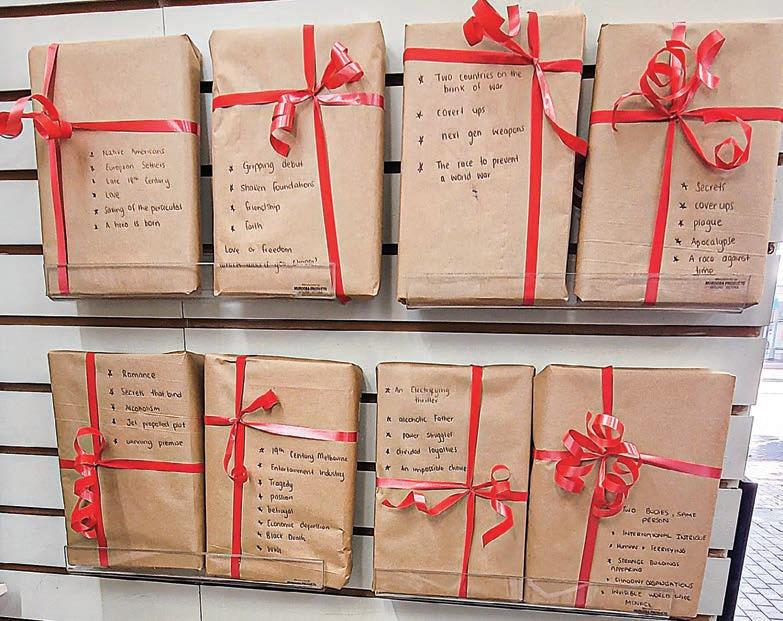 * Native Americans
* European Settlers
* Late 19th Century
* Love
* Saving of the persecuted
* A hero is born
* Gripping debut
* Shaken foundations
* friendship
* Faith
Love or freedom
which would you choose?
MURDOBA PRODUCTS
* Two countries on the
brink of war
* covert ups
* next gen weapons
* The race to prevent
a world war
* Secrets
* cover ups
* plague
* Apocalypse
* A race against
time
* Romance
* Secrets that bind
* Alcoholism
* Jet propelled plot
* winning premise
* 19th Century Melbourne
* Entertainment Industry
* Tragedy
* passion
* betrayal
* Economic depression
* Black Death
* WWI
* An Electrifying
thriller
* alcoholic Father
* power struggles
* divided loyalties
* An impossible choice
* TWO BODIES, SAME
PERSON
* INTERNATIONAL INTRIGUE
* HUMAN & TERRIFYING
* STRANGE BUILDINGS
APPEARING
* SHADOWY ORGANISATIONS
* INVISIBLE WORLD WIDE
MENACE